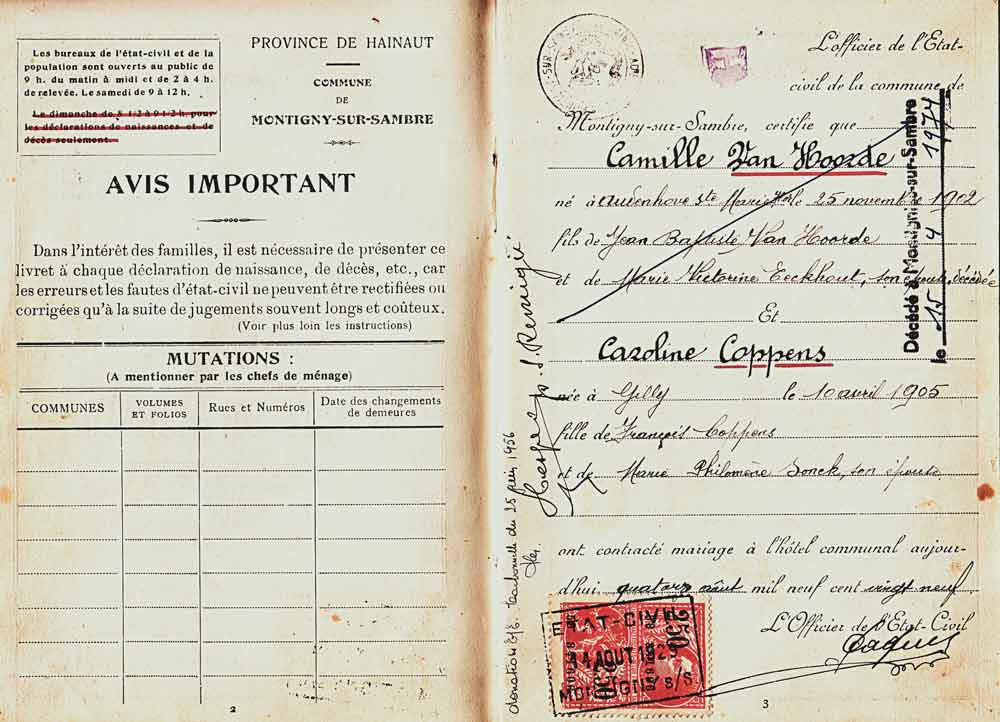 Les bureaux de l'état-civil et de la
population sont ouverts au public de
9 h. du matin à midi et de 2 à 4 h.
de relevée. Le samedi de 9 à 12 h.
Le dimanche de 8 1/2 à 9 1/2 h. pour
les déclarations de naissances et de
décès seulement.
PROVINCE DE HAINAUT
COMMUNE
DE
MONTIGNY-SUR-SAMBRE
AVIS IMPORTANT
Dans l'intérêt des familles, il est nécessaire de présenter ce
livret à chaque déclaration de naissance, de décès, etc., car
les erreurs et les fautes d'état-civil ne peuvent être rectifiées ou
corrigées qu'à la suite de jugements souvent longs et coûteux.
(Voir plus loin les instructions)
MUTATIONS :
(A mentionner par les chefs de ménage)
COMMUNES
VOLUMES
ET FOLIOS
Rues et Numéros
Date des changements
de demeures
2
L'officier de l'Etat-
civil de la commune de
Montigny-sur-Sambre, certifie que
Camille Van Hoorde
né à Audenhove Ste Marie le 25 novembre 1902
fils de Jean Baptiste Van Hoorde
et de Marie Victorine Eeckhout, son épouse, décédée
Et
Caroline Coppens
née à Gilly le 10 avril 1905
fille de François Coppens
et de Marie Philomène Sonck, son épouse
ont contracté mariage à l'hôtel communal aujour-
d'hui quatorze août mil neuf cent vingt neuf
L'Officier de l'Etat-Civil
Décédé à Montigny-sur-Sambre
le 15 4 1974
donation du 25 juin 1956
ETAT-CIVIL
14 AOUT 1929
MONTIGNY s/S
3